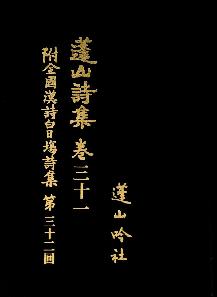 蓬山吟社
蓬山詩集 卷三十一
附全國漢詩白日場詩集 第三十二回